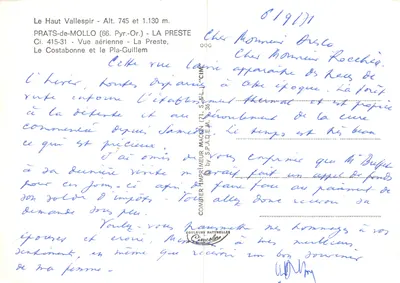 Le Haut Vallespir - Alt. 745 et 1.130 m.
PRATS-de-MOLLO (66. Pyr.-Or.) - LA PRESTE
Ci. 415-31 - Vue aérienne - La Preste,
Le Costabonne et le Pla-Guillem
6/9/71
Cher Monsieur
Cher Monsieur
Cette vue laisse apparaître des traces de
l'hiver, toutes disparues à cette époque. La forêt
verte entoure l'établissement thermal et est propice
à la détente et au déroulement de la cure
commencée depuis Samedi. Le temps est très beau
ce qui est précieux.
J'ai omis de vous confirmer que Mr
à sa dernière visite m'avait fait un appel de fonds
pour ces jours-ci afin de faire face au paiement de
son solde d'impôts. Vous allez donc recevoir sa
demande sous peu.
Veuillez transmettre mes hommages à vos
épouses et croire, à mes meilleurs
sentiments, en même que recevoir un bon souvenir
de ma femme.
COMBIER IMPRIMEUR MACON
COULEURS NATURELLES